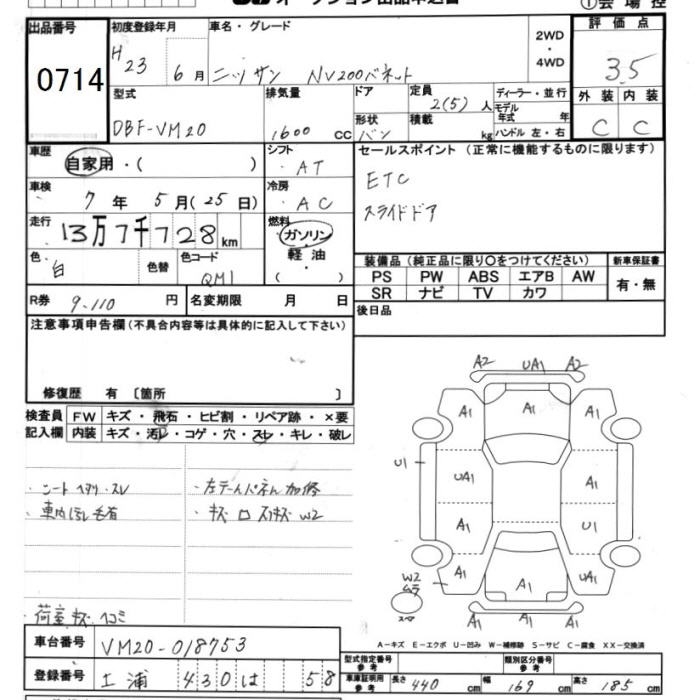 オークション出品申込書 ①会場控
出品番号 初度登録年月 車名・グレード 2WD・4WD 評価点
0714 H23 6月 ニッサン NV200バネット 3.5
型式 排気量 ドア 定員 ディーラー・並行 外装 内装
DBF-VM20 1600 CC 形状 バン 2(5)人 積載 kg モデル年式 年 ハンドル 左・右 C C
車歴 自家用・( ) シフト AT セールスポイント (正常に機能するものに限ります)
車検 7年 5月(25日) 冷房 AC ETC
走行 13万7千728km 燃料 ガソリン・軽油・( ) スライドドア
色 白 色替 色コード QM1 装備品 (純正品に限り○をつけてください) 新車保証書
PS PW ABS エアB AW 有・無
SR ナビ TV カワ
R券 9.110 円 名変期限 月 日 後日品
注意事項申告欄(不具合内容等は具体的に記入して下さい)
修復歴 有 〔箇所 〕
検査員 FW キズ・飛石・ヒビ割・リペア跡・×要
記入欄 内装 キズ・汚レ・コゲ・穴・スレ・キレ・破レ
・シートヘタリ・スレ ・左テールパネル加修
・車内ほし毛有 ・キズ ロ スリキズ W2
荷室キズ ヘコミ
A2 UA1 A2
A1 A1 A1
U1 UA1 A1
A1 U1
W2 ムラ A1 A1 UA1
スペア A1
A-キズ E-エクボ U-凹み W-補修跡 S-サビ C-腐食 XX-交換済
車台番号 VM20-018753
型式指定番号 参考 類別区分番号 参考
登録番号 土浦 430 は 58
車庫証明用 参考 長さ 440 cm 幅 169 cm 高さ 185 cm